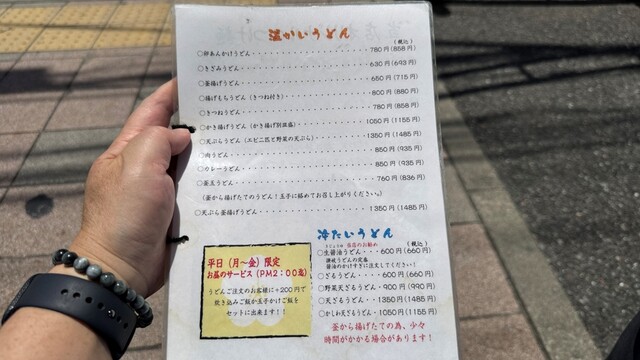 温かいうどん
(税込)
○卵あんかけうどん・・・・・・・・・・・・780円(858円)
○きざみうどん・・・・・・・・・・・・・・630円(693円)
○釜揚げうどん・・・・・・・・・・・・・・650円(715円)
○揚げもちうどん(きつね付き)・・・・・・・800円(880円)
○きつねうどん・・・・・・・・・・・・・・780円(858円)
○かき揚げうどん(かき揚げ別皿盛)・・・・1050円(1155円)
○天ぷらうどん(エビ二匹と野菜の天ぷら)・・・・1350円(1485円)
○肉うどん・・・・・・・・・・・・・・・・850円(935円)
○カレーうどん・・・・・・・・・・・・・・850円(935円)
○釜玉うどん・・・・・・・・・・・・・・・760円(836円)
(釜から揚げたてのうどん!玉子に絡めてお召し上がりください。)
○天ぷら釜揚げうどん・・・・・・・・・・・1350円(1485円)
冷たいうどん
(税込)
当店のお勧め
○生醤油うどん・・・600円(660円)
讃岐うどんの定番
醤油のかけすぎに注意してください!
○ざるうどん・・・・・600円(660円)
○野菜天ざるうどん・・900円(990円)
○天ざるうどん・・・1350円(1485円)
○かしわ天ざるうどん・1050円(1155円)
釜から揚げたての為、少々
時間がかかる場合があります!
平日(月～金)限定
お昼のサービス(PM2:00迄)
うどんご注文のお客様に+200円で
炊き込みご飯か玉子かけご飯を
セットに出来ます!!